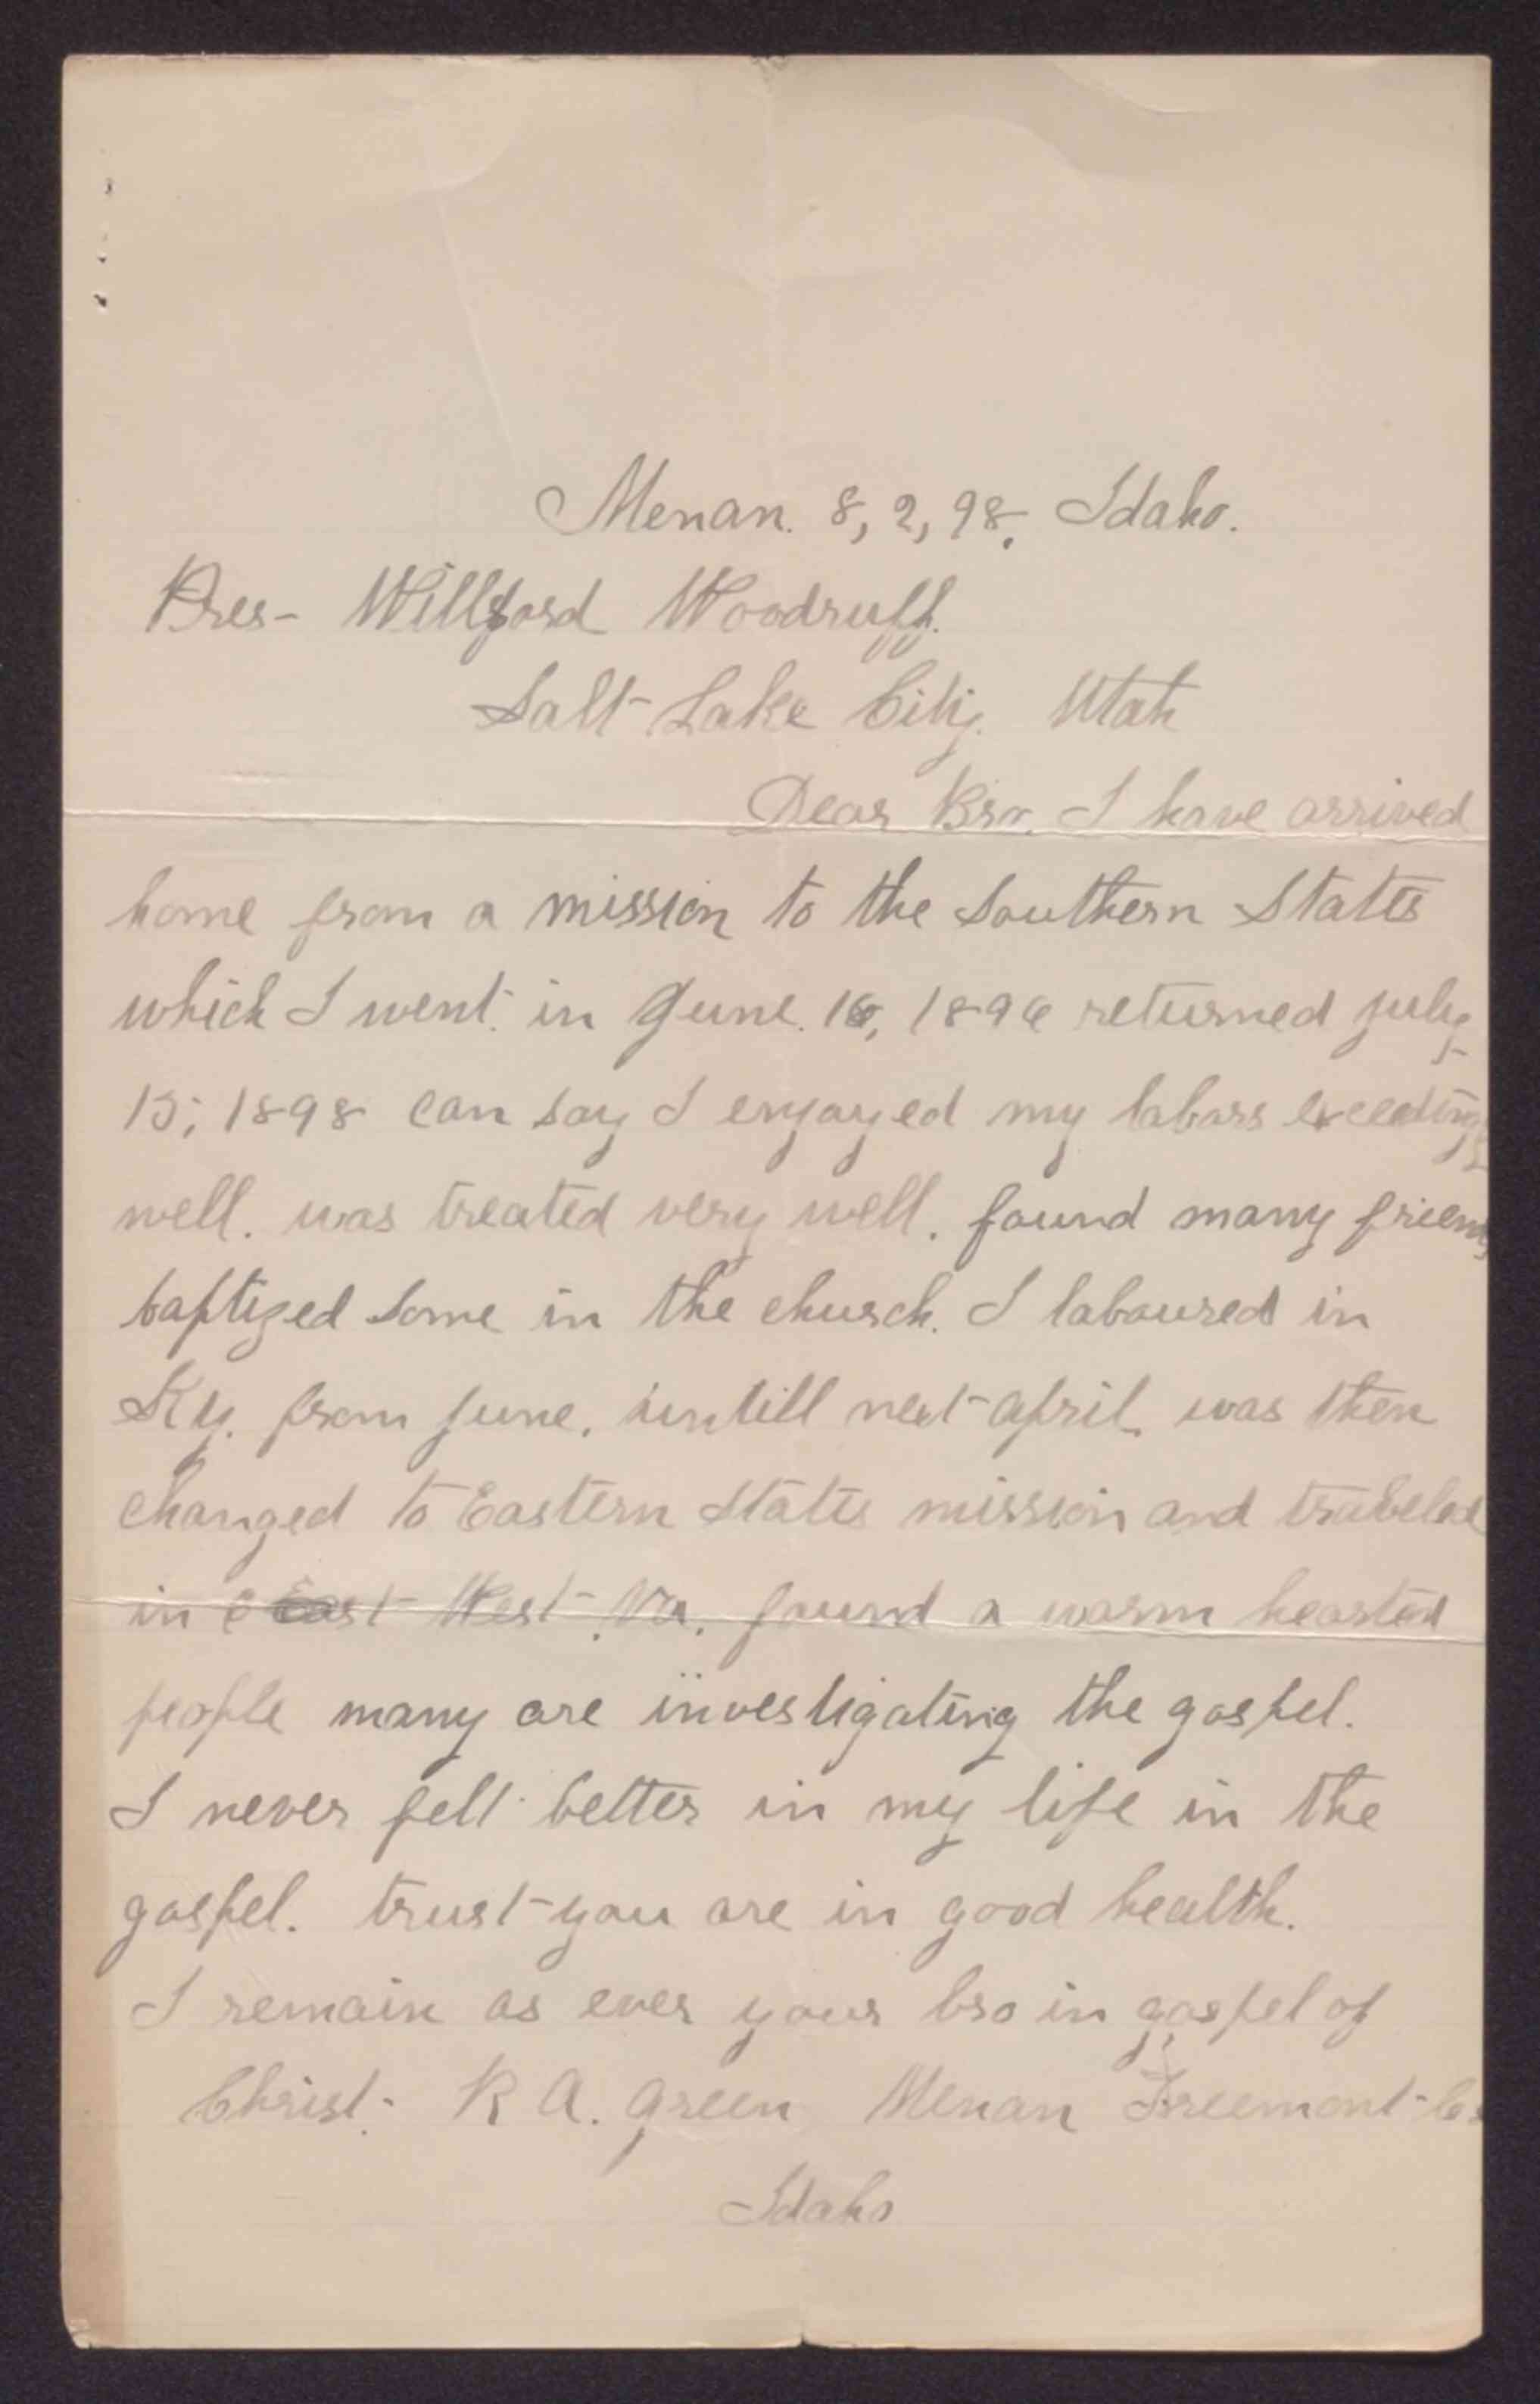 Menan. 8, 2, 98, Idaho.
Pres- Willford Woodruff.
Salt Lake City. Utah
Dear Bro. I have arrived
home from a mission to the Southern States
which I went in June. 16, 1896 returned july
15, 1898 can say I enjoyed my labors exceedingly
well. was treated very well. found many friends
baptized some in the church. I laboured in
Ky. from june. untill next april was then
changed to Eastern States mission and trabeled
in East West Va. found a warm hearted
people many are investigating the gospel.
I never felt better in my life in the
gospel. trust you are in good health.
I remain as ever your bro in gospel of
Christ. R A. Green Menan Freemont Co
Idaho